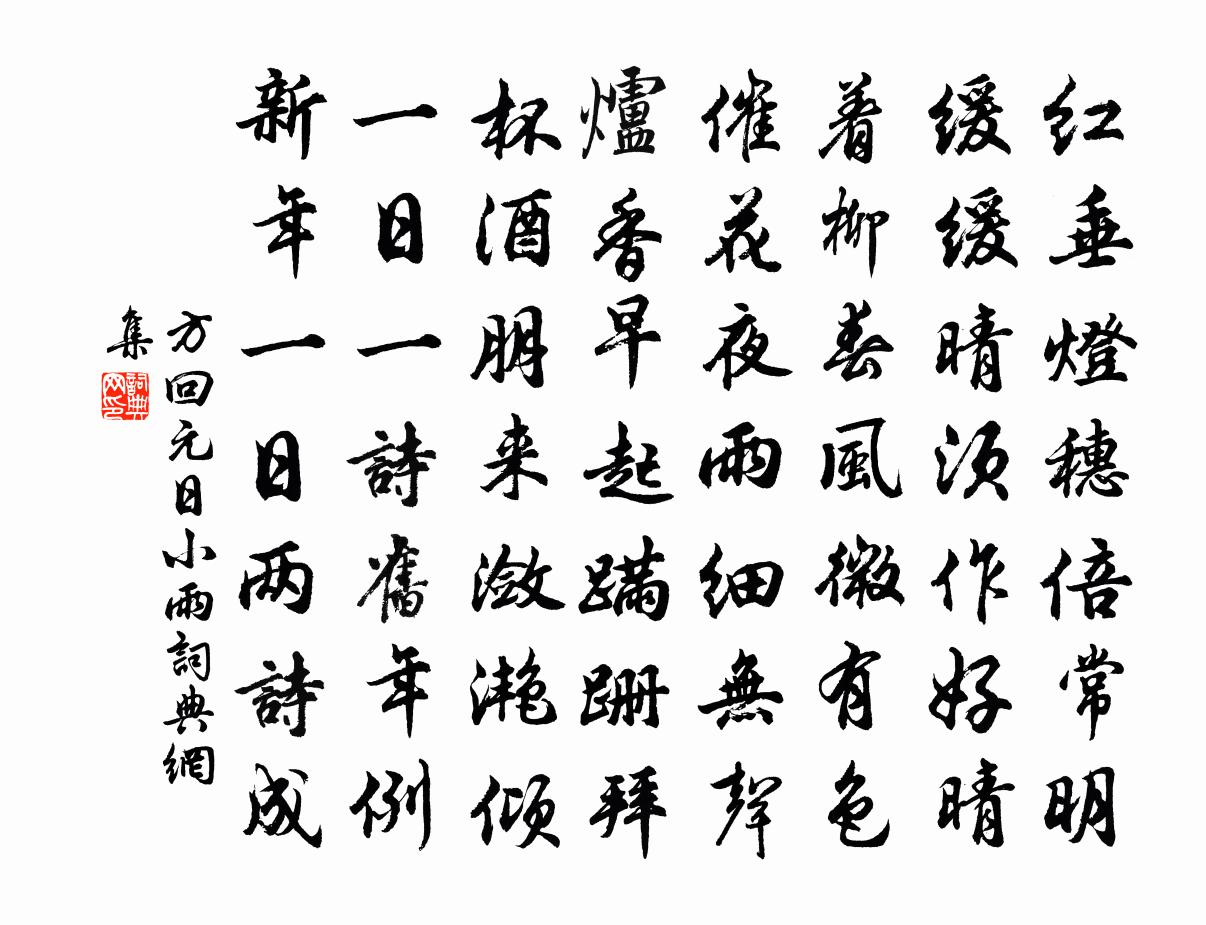 红垂燈穗倍常明
缓缓晴须作好晴
着柳春風微有色
催花夜雨細無聲
爐香早起蹣跚拜
杯酒朋来潋滟倾
一日一詩舊年例
新年一日两詩成
方回元日小雨詞典網
集
詞典
网印